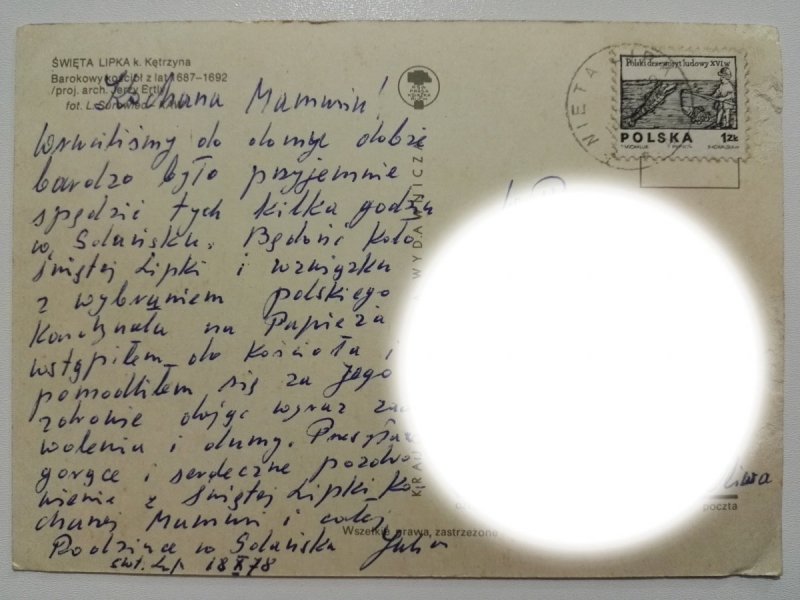 ŚWIĘTA LIPKA k. Kętrzyna
Barokowy kościół z lat 1687–1692
/proj. arch. Jerzy Ertly/
fot. L. Surowiec
Kochana Mamusiu!
Wróciliśmy do domu dobrze
bardzo było przyjemnie
spędzić tych kilka godzin
w Gdańsku. Będąc koło
świętej Lipki i w związku
z wybraniem polskiego
Kardynała na Papieża
wstąpiłem do Kościoła i
pomodliłem się za Jego
zdrowie dając wyraz
wolenia i dumy. Przesyłam
gorące i serdeczne pozdro
wienia z Świętej Lipki Ko
chanej Mamusi i całej
Rodzince w Gdańsku
św. Lp. 18 X 78
WYDAWNICZ
KRA
Polski drzeworyt ludowy XVI w.
POLSKA 1ZŁ
ŚWIĘTA
Wszelkie prawa zastrzeżone
poczta